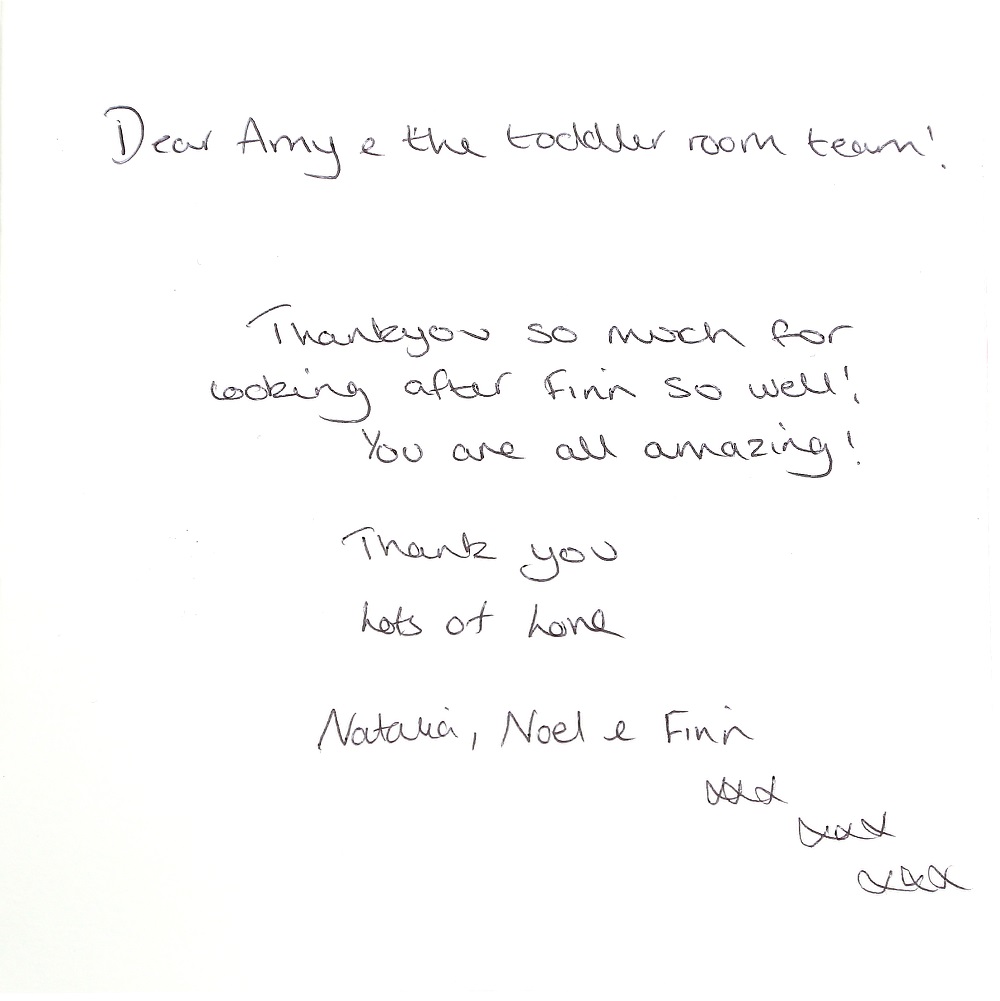 Dear Amy & the toddler room team!
Thankyou so much for
looking after Finn so well!
You are all amazing!
Thank you
Lots of Love
Natalia, Noel & Finn
xxx
xxx
xxx